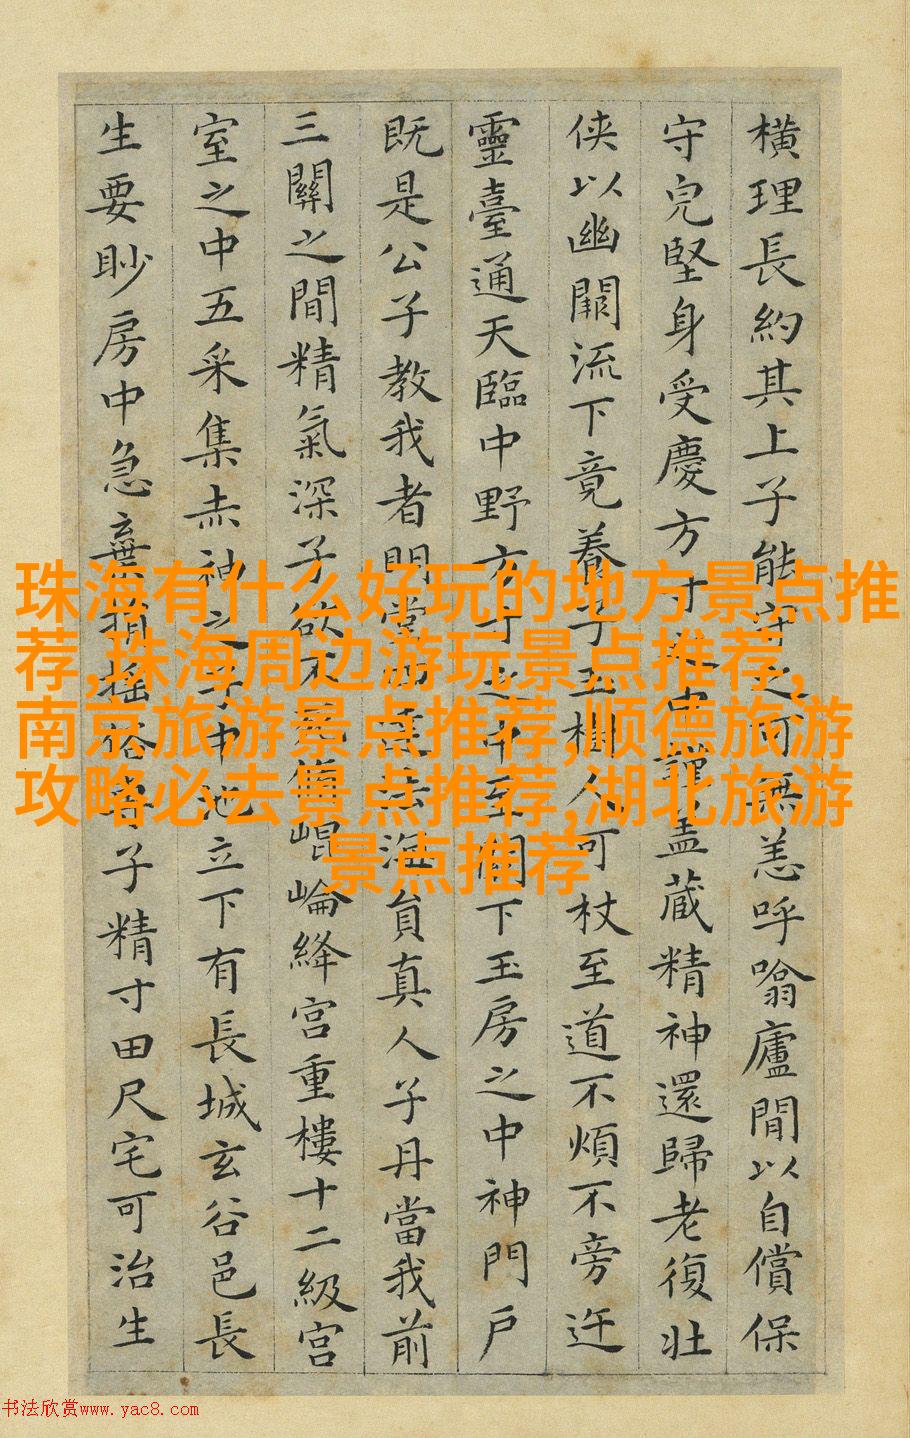 橫理長約其上子能守之可無恙呼噏廬間以自償保
守完堅身受慶方寸之中謹蓋藏精神還歸老復壯
俠以幽闕流下竟養子玉樹人可杖至道不煩不旁迕
靈臺通天臨中野方寸之中至關下玉房之中神門戶
既是公子教我者明堂四達法海員真人子丹當我前
三關之間精氣深子欲不死脩崐崘絳宮重樓十二級宮
室之中五采集赤神之子中池立下有長城玄谷邑長
生要眇房中急棄捐搖俗專子精寸田尺宅可治生
珠海有什么好玩的地方景点推
荐,珠海周边游玩景点推荐,
南京旅游景点推荐,顺德旅游
攻略必去景点推荐,湖北旅游
景点推荐
书法欣赏www.yac8.com